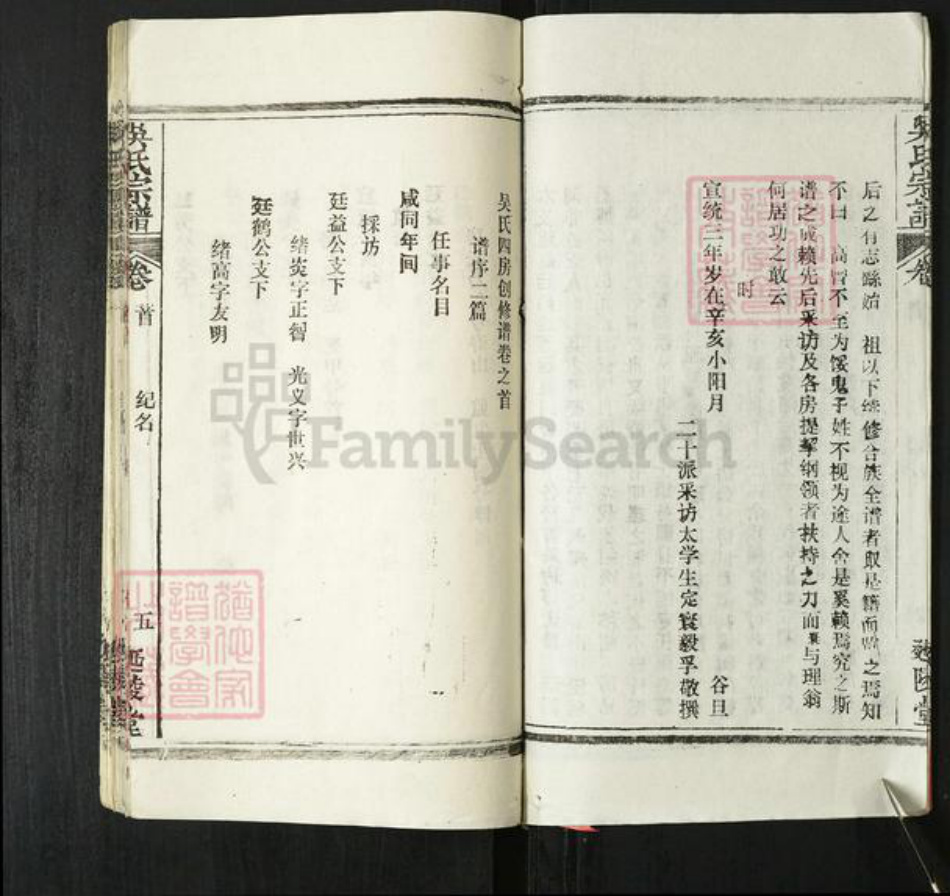 后之有志 祖以下 修合族全谱者取是籍而 之焉知
不曰 高曾不至为馁鬼子姓不视为途人舍是奚赖焉究之斯
谱之成赖先后采访及各房提挈纲领者扶持之力而 与理翁
何居功之敢云
时
宣统三年岁在辛亥小阳月 谷旦
二十派采访太学生定寰毅孚敬撰
吴氏四房创修谱卷之首
谱序二篇
任事名目
咸同年间
採访
廷益公支下
绪炎字正智 光义字世兴
廷鹤公支下
绪高字友明
吴氏宗谱
卷
首
纪名
五
延陵堂
FamilySearch